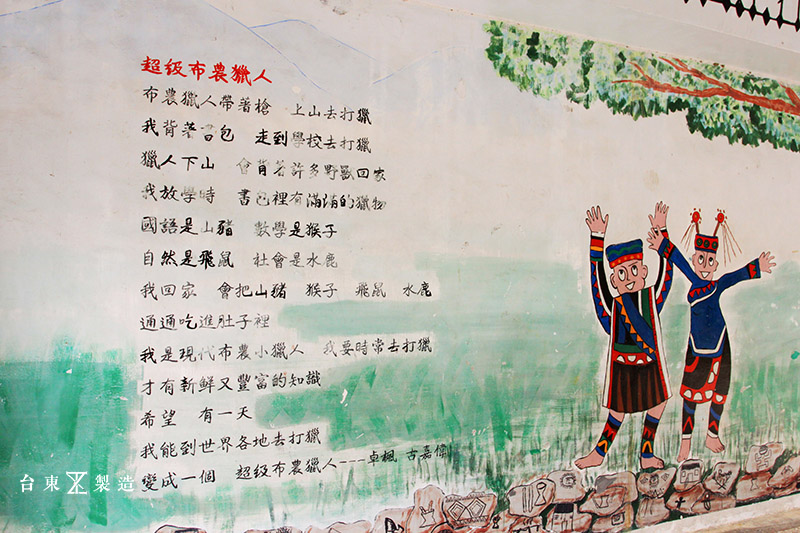 超级布農獵人
布農獵人帶著槍　上山去打獵
我背著書包　走到學校去打獵
獵人下山　會背著許多野獸回家
我放學時　書包裡有滿滿的獵物
國語是山豬　數學是猴子
自然是飛鼠　社會是水鹿
我回家　會把山豬　猴子　飛鼠　水鹿
通通吃進肚子裡
我是現代布農小獵人　我要時常去打獵
才有新鮮又豐富的知識
希望　有一天
我能到世界各地去打獵
變成一個　超级布農獵人---卓楓 古嘉偉
台東 製造